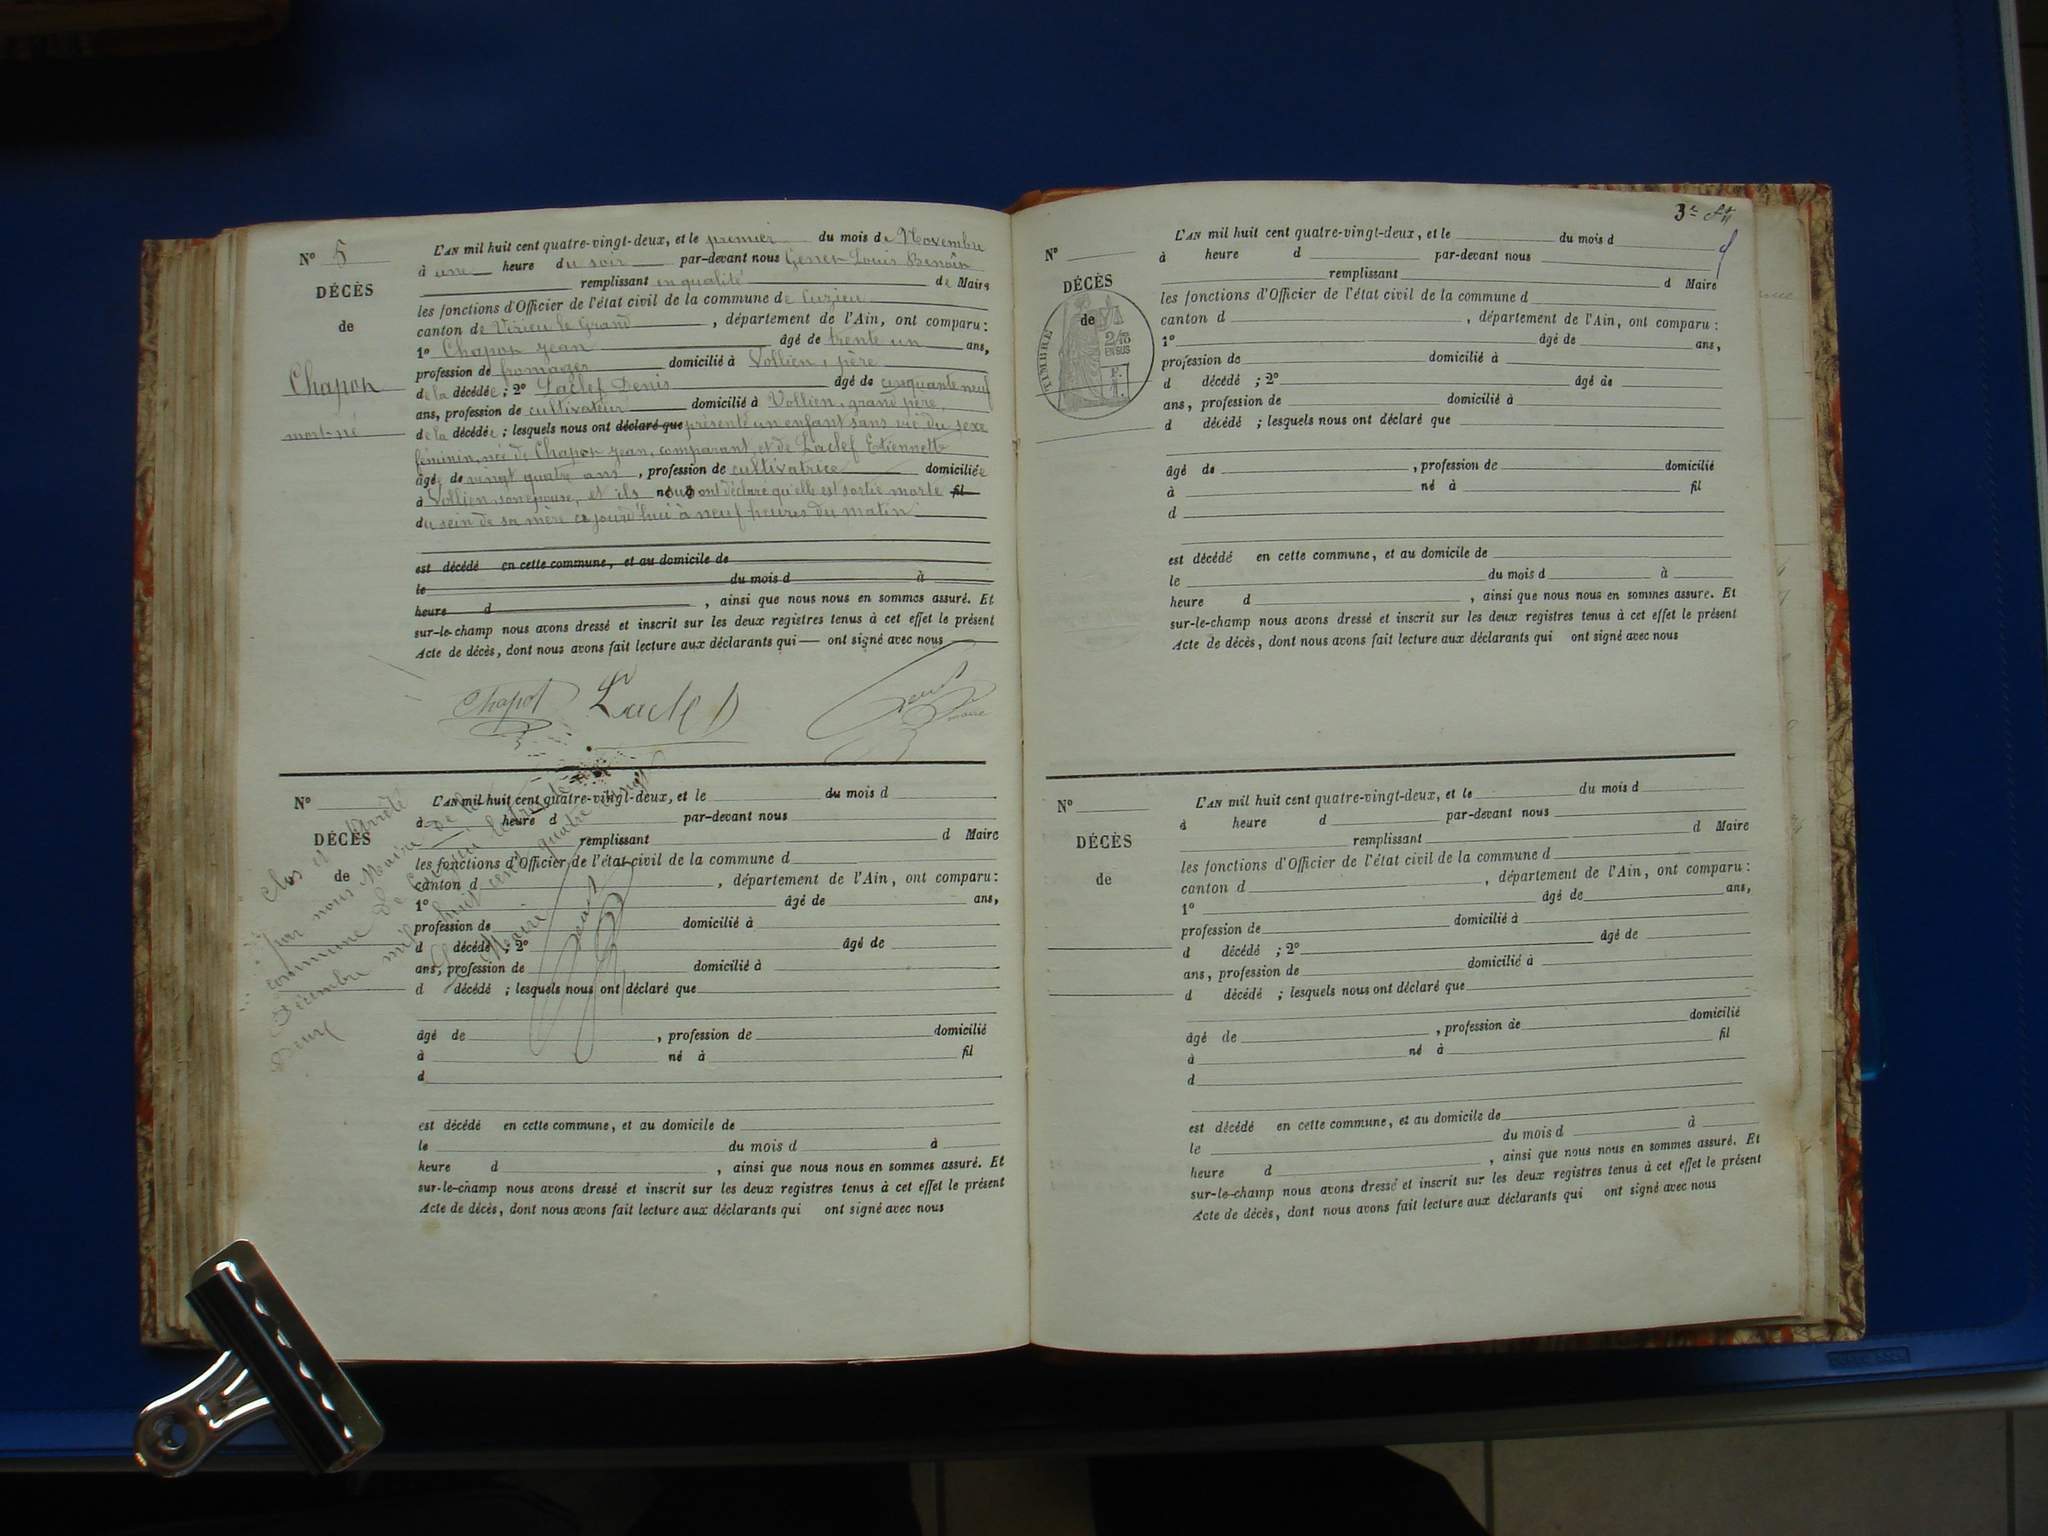 N° 5
DÉCÈS
de
Chapon
mort-né
L'AN mil huit cent quatre-vingt-deux, et le premier du mois de Novembre
à une heure du soir par-devant nous Louis Benoît
remplissant en qualité de Maire
les fonctions d'Officier de l'état civil de la commune de Cuzieu
canton de Virieu le Grand, département de l'Ain, ont comparu :
1° Chapon Jean âgé de trente un ans,
profession de fromager domicilié à Vollien, père
de la décédée ; 2° Laclef Denis âgé de cinquante neuf
ans, profession de cultivateur domicilié à Vollien, grand père,
de la décédée ; lesquels nous ont déclaré que présenté un enfant sans vie du sexe
féminin, née de Chapon Jean, comparant, et de Laclef Etiennette
âgée de vingt quatre ans, profession de cultivatrice domiciliée
à Vollien, son épouse, et ils nous ont déclaré qu'elle est sortie morte fil
du sein de sa mère cejourd'hui à neuf heures du matin
est décédé en cette commune, et au domicile de
le du mois d à
heure d , ainsi que nous nous en sommes assuré. Et
sur-le-champ nous avons dressé et inscrit sur les deux registres tenus à cet effet le présent
Acte de décès, dont nous avons fait lecture aux déclarants qui — ont signé avec nous
Chapon Laclef D
maire
N°
DÉCÈS
de
L'AN mil huit cent quatre-vingt-deux, et le du mois d
à heure d par-devant nous
remplissant d Maire
les fonctions d'Officier de l'état civil de la commune d
canton d , département de l'Ain, ont comparu :
1° âgé de ans,
profession de domicilié à
d décédé ; 2° âgé de
ans, profession de domicilié à
d décédé ; lesquels nous ont déclaré que
âgé de , profession de domicilié
à né à fil
d
est décédé en cette commune, et au domicile de
le du mois d à
heure d , ainsi que nous nous en sommes assuré. Et
sur-le-champ nous avons dressé et inscrit sur les deux registres tenus à cet effet le présent
Acte de décès, dont nous avons fait lecture aux déclarants qui ont signé avec nous
Clos et arrêté
par nous Maire de la
commune de Cuzieu le trente un
Décembre mil huit cent quatre vingt
Deux
Le Maire
3e
N°
DÉCÈS
de
TIMBRE
2/10
EN SUS
L'AN mil huit cent quatre-vingt-deux, et le du mois d
à heure d par-devant nous
remplissant d Maire
les fonctions d'Officier de l'état civil de la commune d
canton d , département de l'Ain, ont comparu :
1° âgé de ans,
profession de domicilié à
d décédé ; 2° âgé de
ans, profession de domicilié à
d décédé ; lesquels nous ont déclaré que
âgé de , profession de domicilié
à né à fil
d
est décédé en cette commune, et au domicile de
le du mois d à
heure d , ainsi que nous nous en sommes assuré. Et
sur-le-champ nous avons dressé et inscrit sur les deux registres tenus à cet effet le présent
Acte de décès, dont nous avons fait lecture aux déclarants qui ont signé avec nous
N°
DÉCÈS
de
L'AN mil huit cent quatre-vingt-deux, et le du mois d
à heure d par-devant nous
remplissant d Maire
les fonctions d'Officier de l'état civil de la commune d
canton d , département de l'Ain, ont comparu :
1° âgé de ans,
profession de domicilié à
d décédé ; 2° âgé de
ans, profession de domicilié à
d décédé ; lesquels nous ont déclaré que
âgé de , profession de domicilié
à né à fil
d
est décédé en cette commune, et au domicile de
le du mois d à
heure d , ainsi que nous nous en sommes assuré. Et
sur-le-champ nous avons dressé et inscrit sur les deux registres tenus à cet effet le présent
Acte de décès, dont nous avons fait lecture aux déclarants qui ont signé avec nous